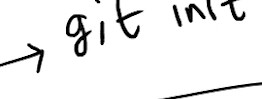 → git init